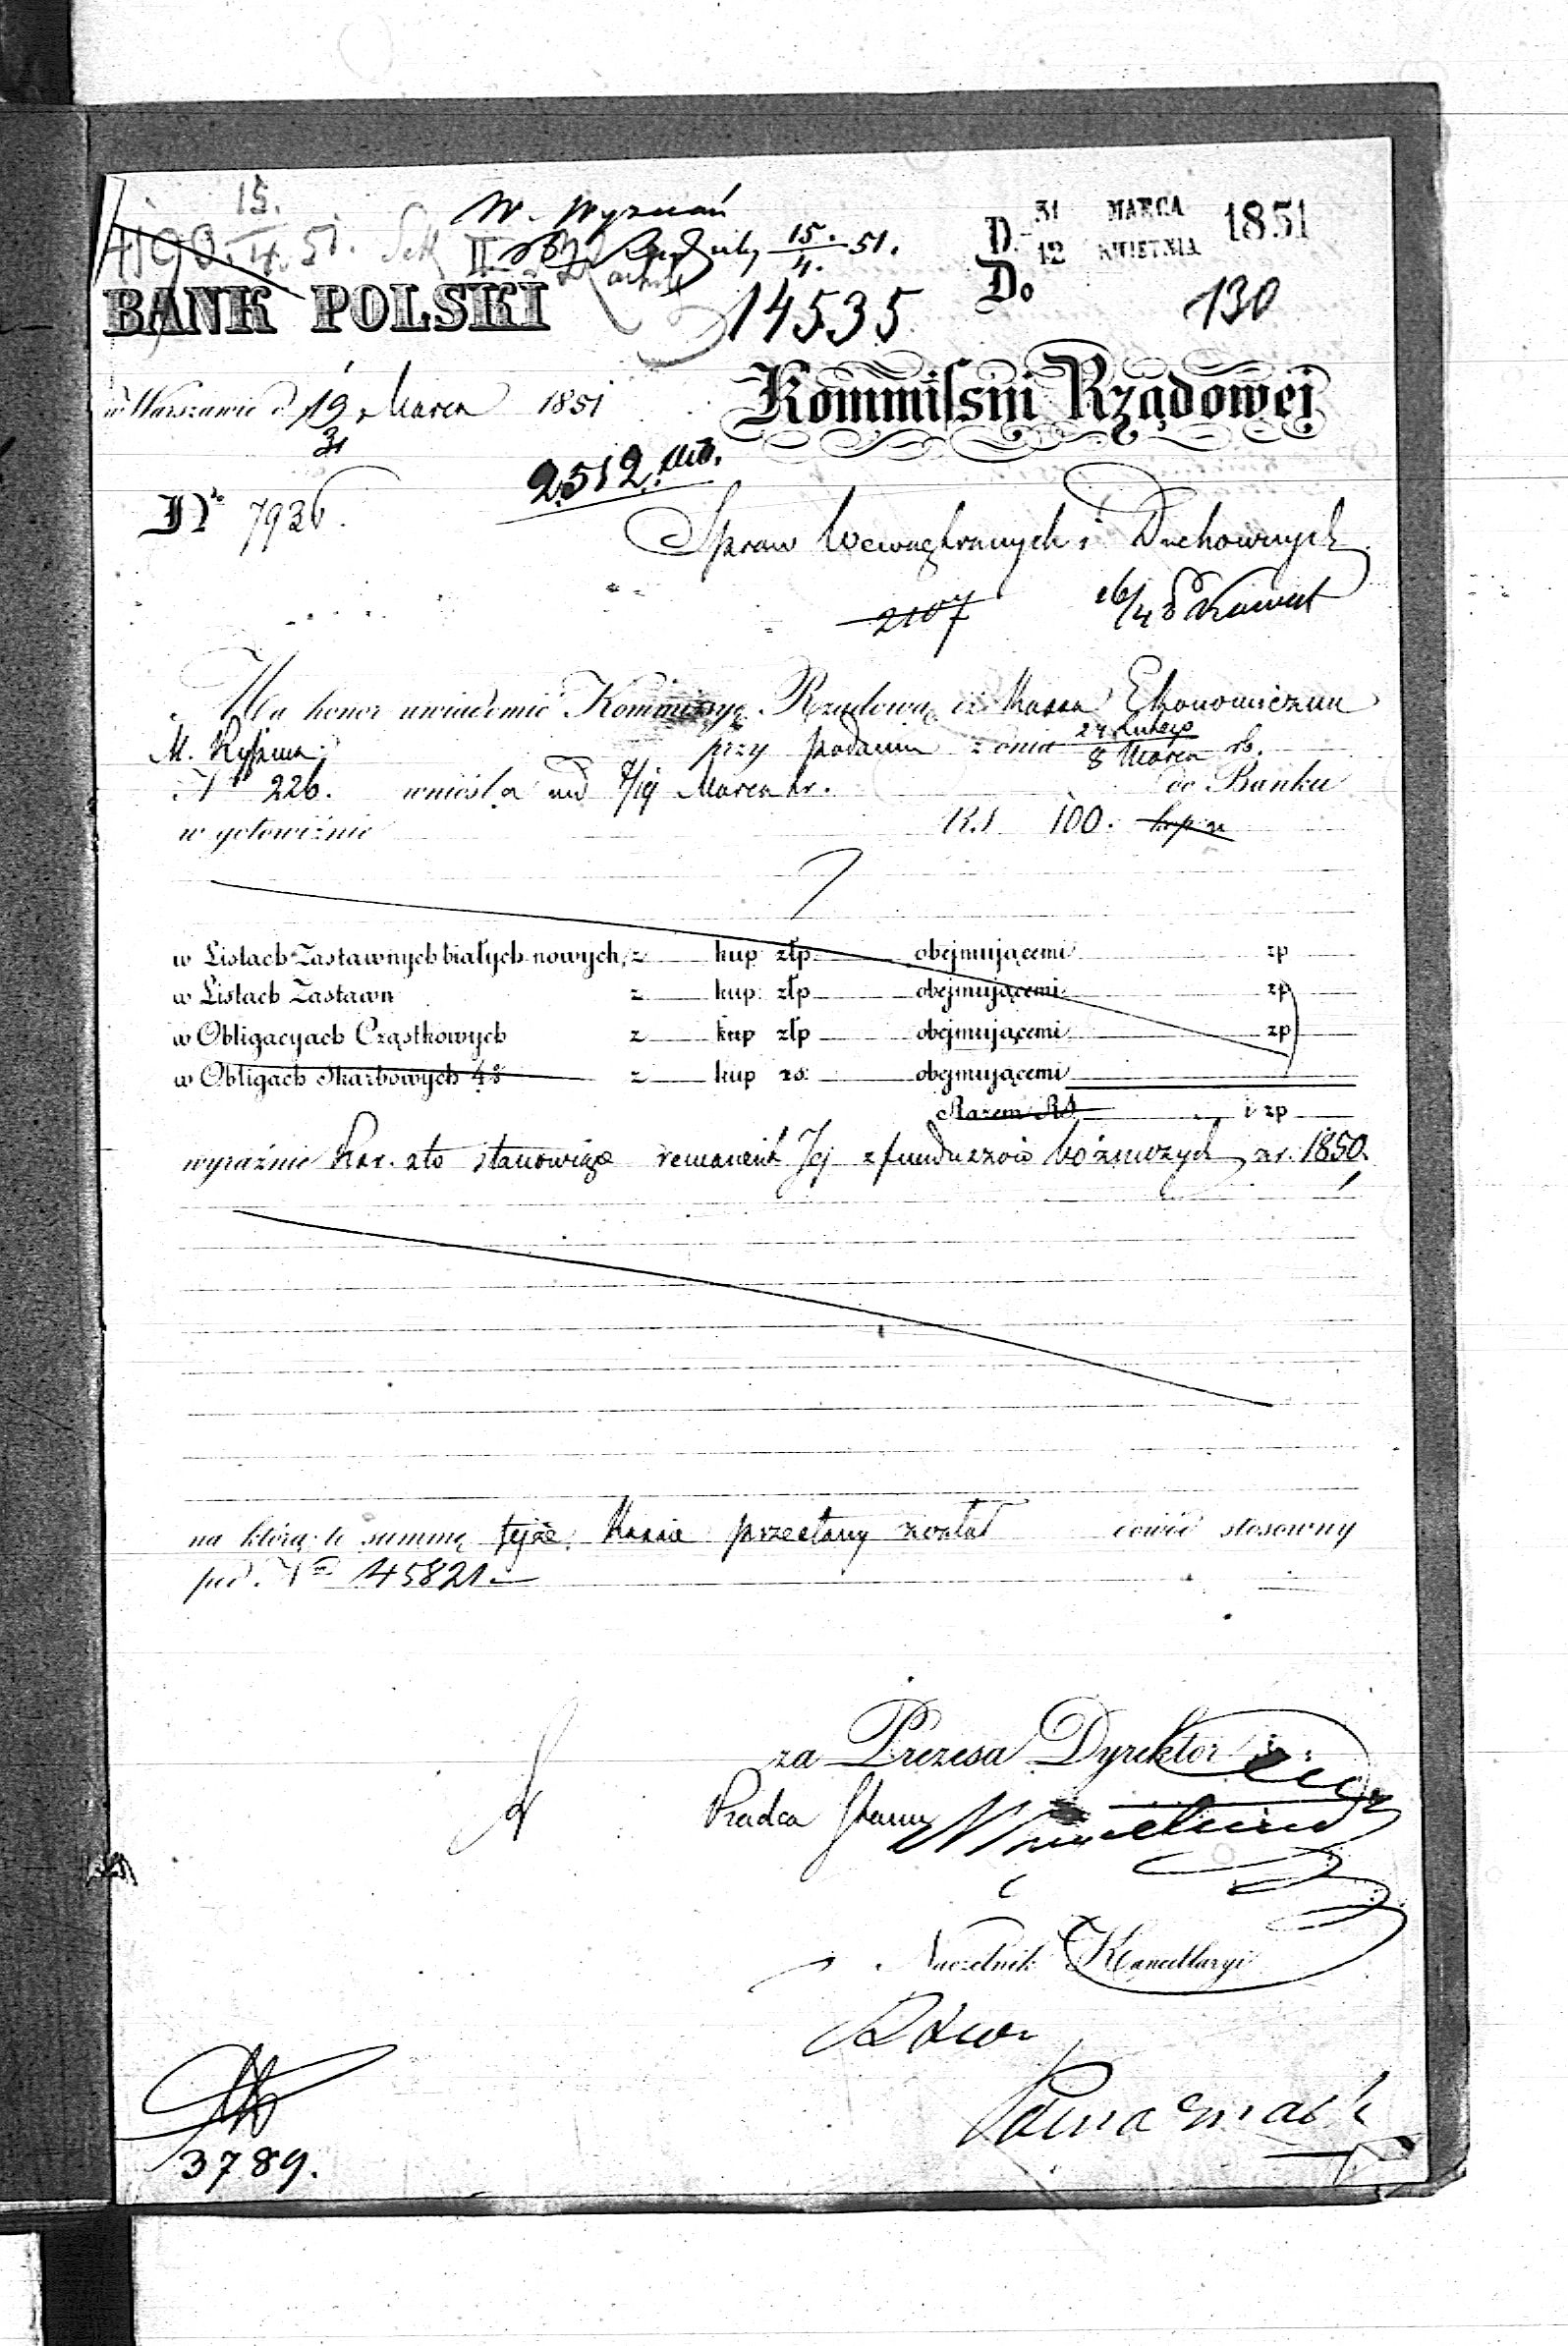 15.
4190. 4. 51. Sek II
W. Wyznań
15./4. 51.
D. 31 MARCA 1851
12 KWIETNIA
Do
130
BANK POLSKI
14535
w Warszawie d. 19 Marca 1851
31
Kommissyi Rządowej
2512
No 7936.
Spraw Wewnętrznych i Duchownych
2107
16/4
Ma honor uwiadomić Kommissyę Rządową iż Kassa Ekonomiczna
M. przy podaniu z dnia 24 Lutego / 8 Marca rb.
N 226. wniosła pod 7/19 Marca br. do Banku
w gotowiźnie R.S. 100. kop.
w Listach Zastawnych białych nowych, z kup złp obejmującemi zp
w Listach Zastawn z kup: złp obejmującemi zp
w Obligacyach Cząstkowych z kup złp obejmującemi zp
w Obligach Skarbowych 4% z kup rs: obejmującemi
Razem RS i zp
wyraźnie Rsr. sto stanowiące remanent Jej z funduszów bóżniczych z r. 1850.
na którą to summę tejże Kassie przesłany został dowód stosowny
pod No 45821.
za Prezesa Dyrektor
Radca Stanu
Naczelnik Kancellaryi
3789.